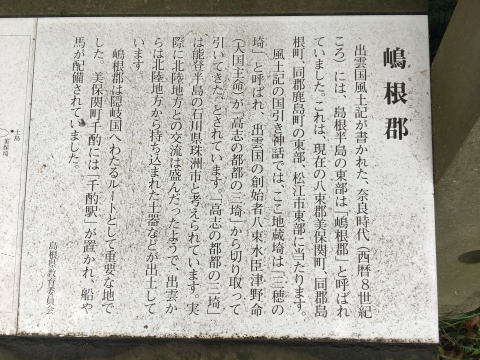 嶋根郡
出雲国風土記が書かれた、奈良時代（西暦８世紀
ころ）には、島根半島の東部は「嶋根郡」と呼ばれ
ていました。これは、現在の八束郡美保関町、同郡島
根町、同郡鹿島町の東部、松江市東部に当たります。
風土記の国引き神話では、ここ地蔵埼は「三穂の
埼」と呼ばれ、出雲国の創始者八束水臣津野命
（大国主命）が「高志の都都の三埼」から切り取って
引いてきた、とされています。「高志の都都の三埼」
は能登半島の石川県珠洲市と考えられています。実
際に北陸地方との交流は盛んだったようで、出雲か
らは北陸地方から持ち込まれた土器などが出土して
います。
嶋根郡は隠岐国へわたるルートとして重要な地で
した。美保関町千酌には「千酌駅」が置かれ、船や
馬が配備されていました。
島根県教育委員会
美保埼